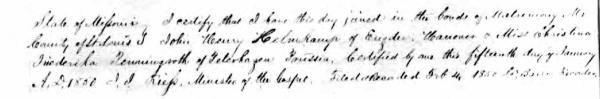 State of Missouri } I certify that I have this day joined in the bonds of Matrimony Mr
County of St Louis } John Henry Holenkamp of Hanover & Miss Christina
Frederika Penningroth of Prussia. Certified by me this fifteenth day of January
A.D. 1850 Minister of the Gospel. Filed & recorded Feb 1850